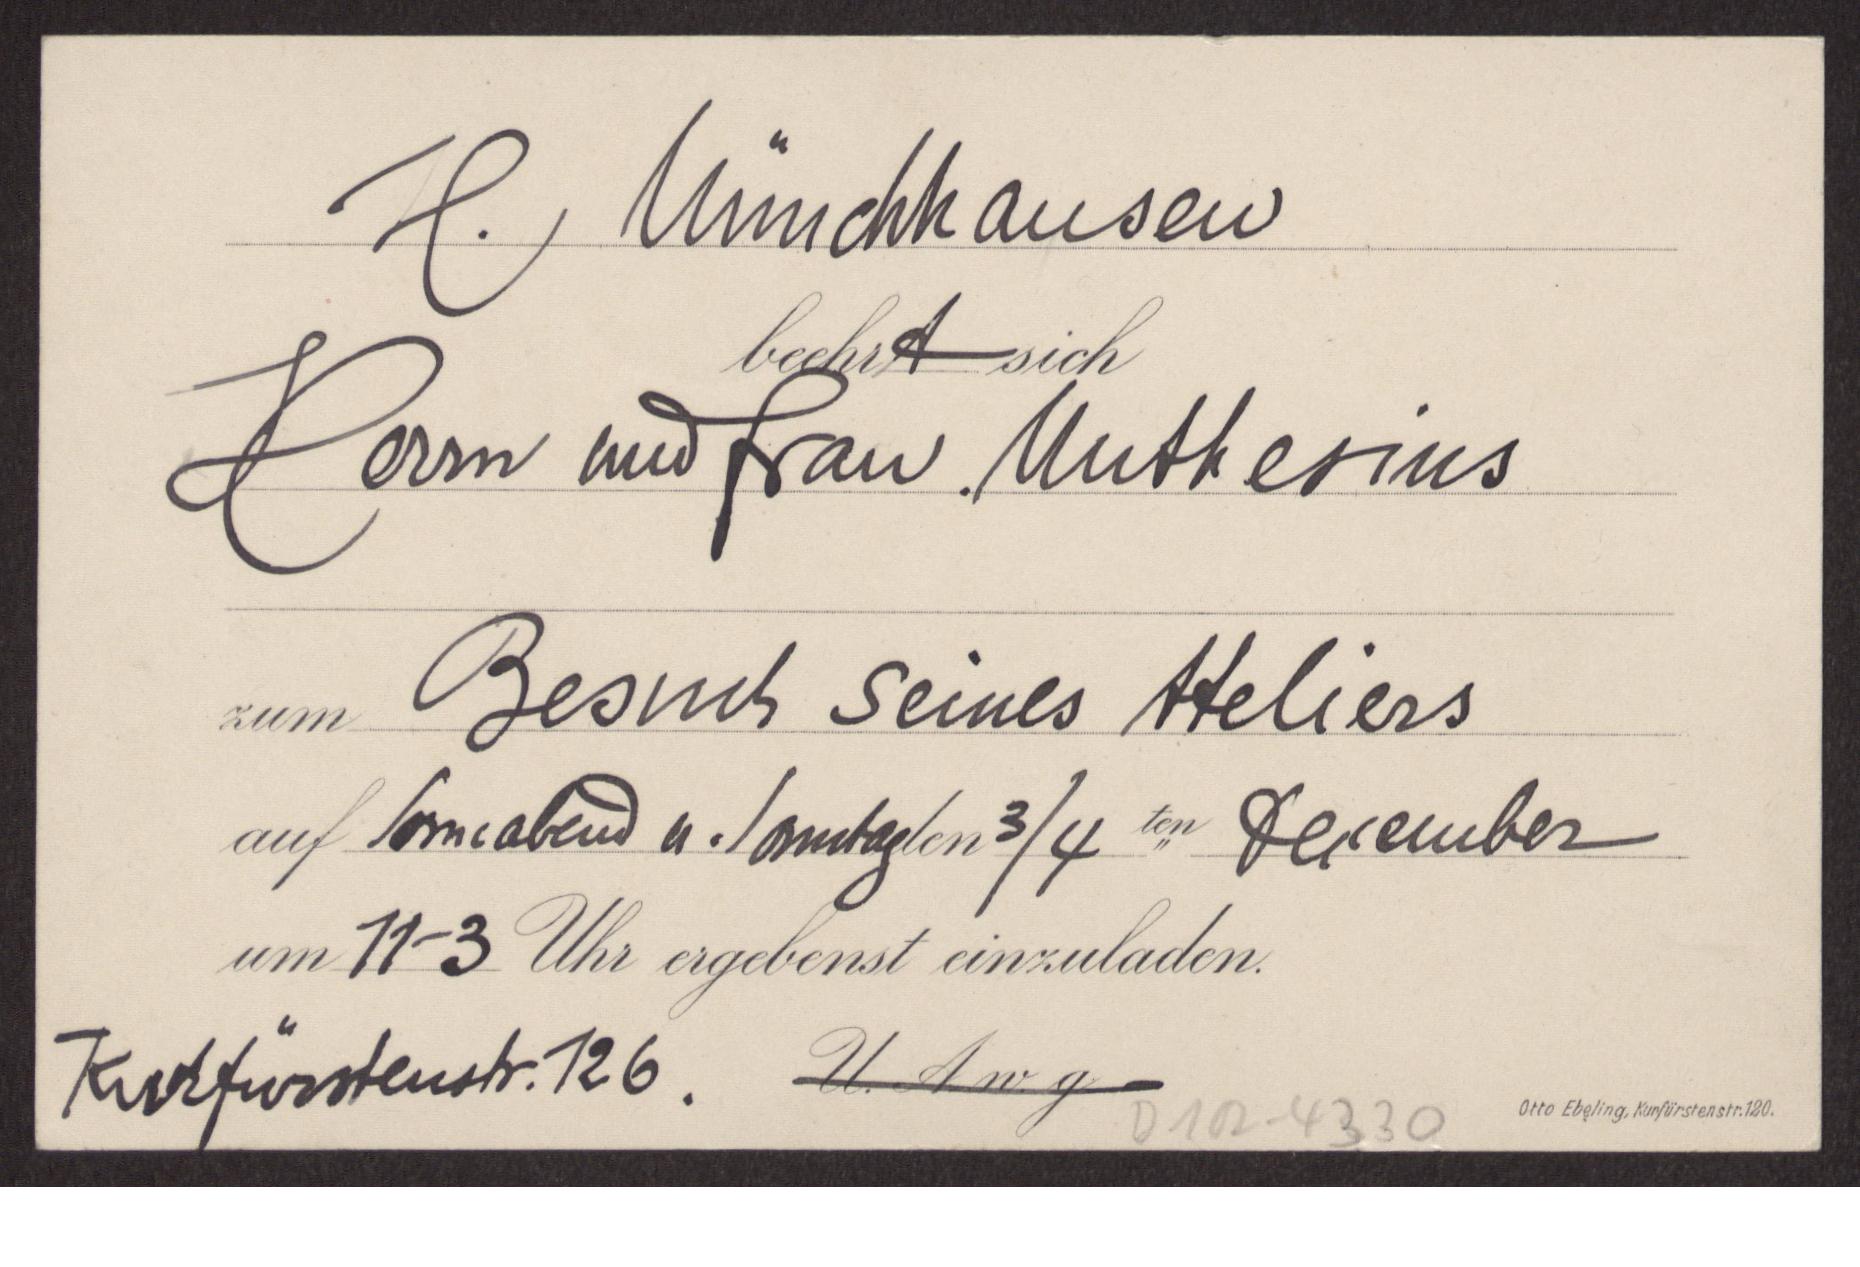 H. Münchhausen
beehrt sich
Herrn und Frau Muthesius
zum Besuch seines Ateliers
auf Sonnabend u. Sonntag den 3/4 ten December
um 11-3 Uhr ergebenst einzuladen.
Kurfürstenstr. 126. U. A w. g
D 102-4330
Otto Ebeling, Kurfürstenstr. 120.